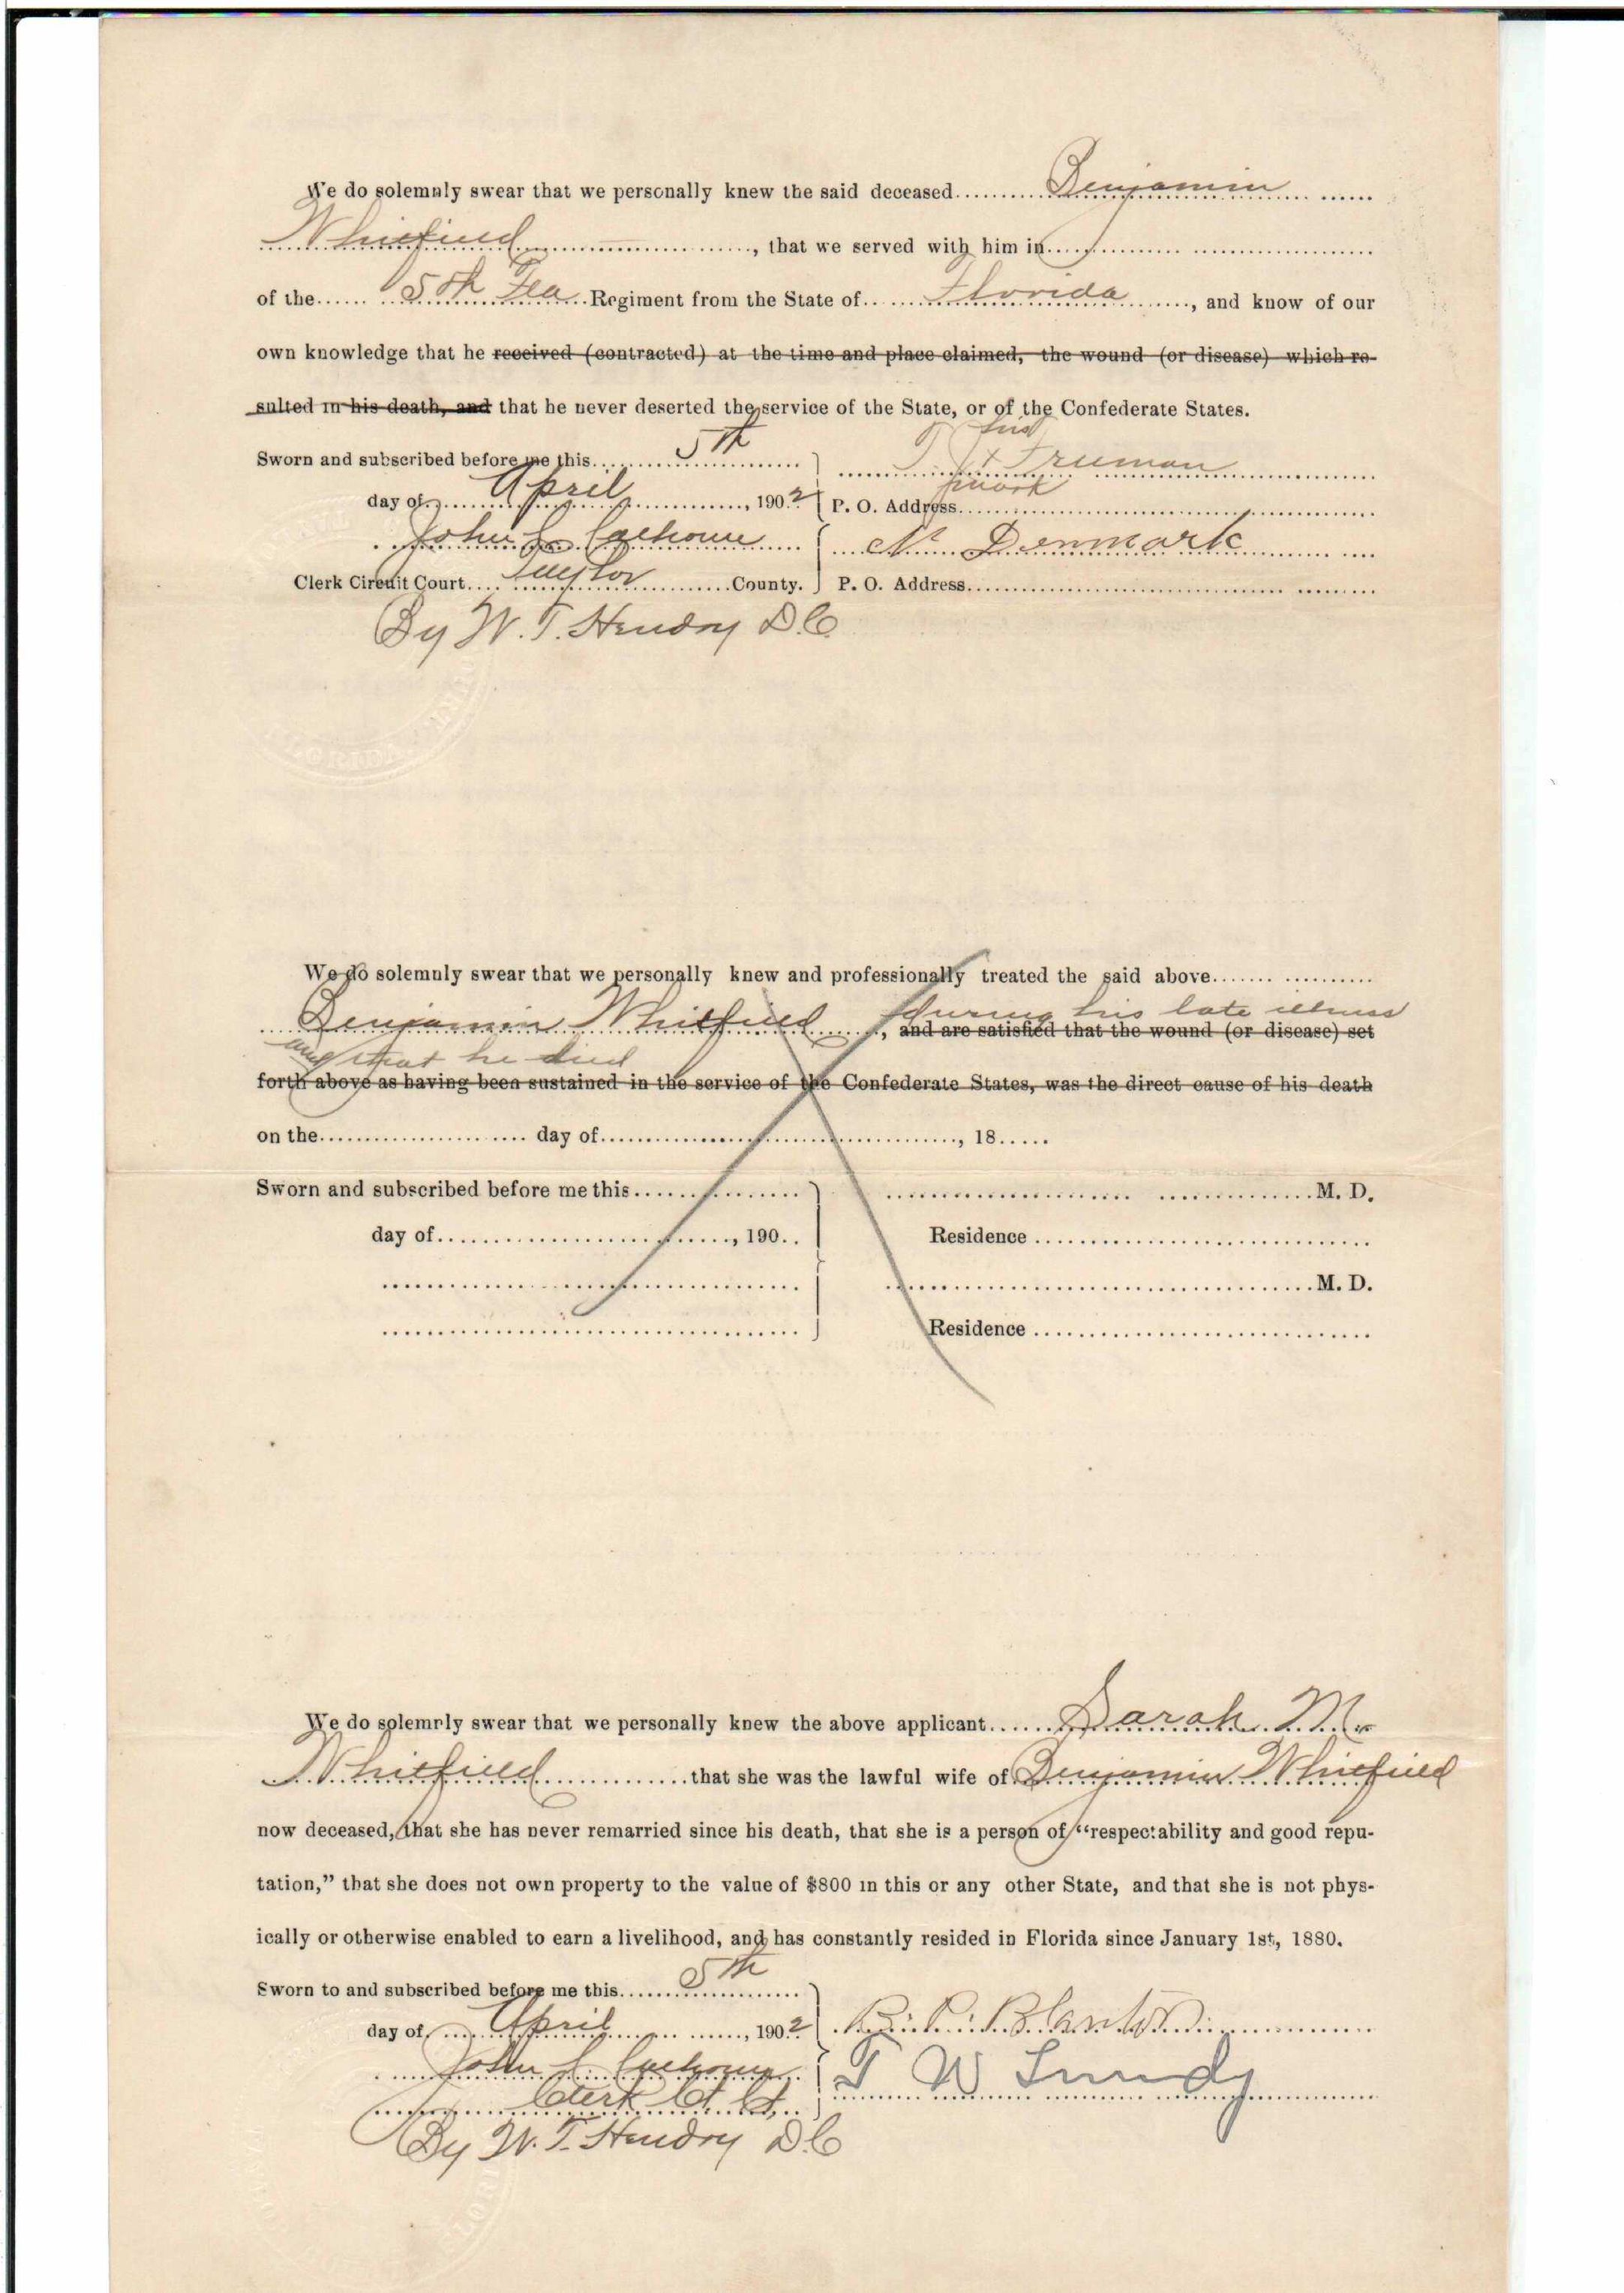 We do solemnly swear that we personally knew the said deceased Benjamin
Whitfield, that we served with him in
of the 5th Fla Regiment from the State of Florida, and know of our
own knowledge that he received (contracted) at the time and place claimed, the wound (or disease) which re-
sulted in his death, and that he never deserted the service of the State, or of the Confederate States.
his
Sworn and subscribed before me this 5th
T J x Truman
mark
day of April, 1902
P. O. Address
John C Calhoun
N Denmark
Clerk Circuit Court Taylor County.
P. O. Address
By W. T. Hendry D.C.
We do solemnly swear that we personally knew and professionally treated the said above
Benjamin Whitfield during his late illness
, and are satisfied that the wound (or disease) set
and that he died
forth above as having been sustained in the service of the Confederate States, was the direct cause of his death
on the day of, 18
Sworn and subscribed before me this
M. D.
day of, 190
Residence
M. D.
Residence
We do solemnly swear that we personally knew the above applicant Sarah M.
Whitfield that she was the lawful wife of Benjamin Whitfield
now deceased, that she has never remarried since his death, that she is a person of "respectability and good repu-
tation," that she does not own property to the value of $800 in this or any other State, and that she is not phys-
ically or otherwise enabled to earn a livelihood, and has constantly resided in Florida since January 1st, 1880.
Sworn to and subscribed before me this 5th
day of April, 1902
R. P. Blanton
John C Calhoun
T W Lundy
Clerk Ct Ct
By W. T. Hendry D.C